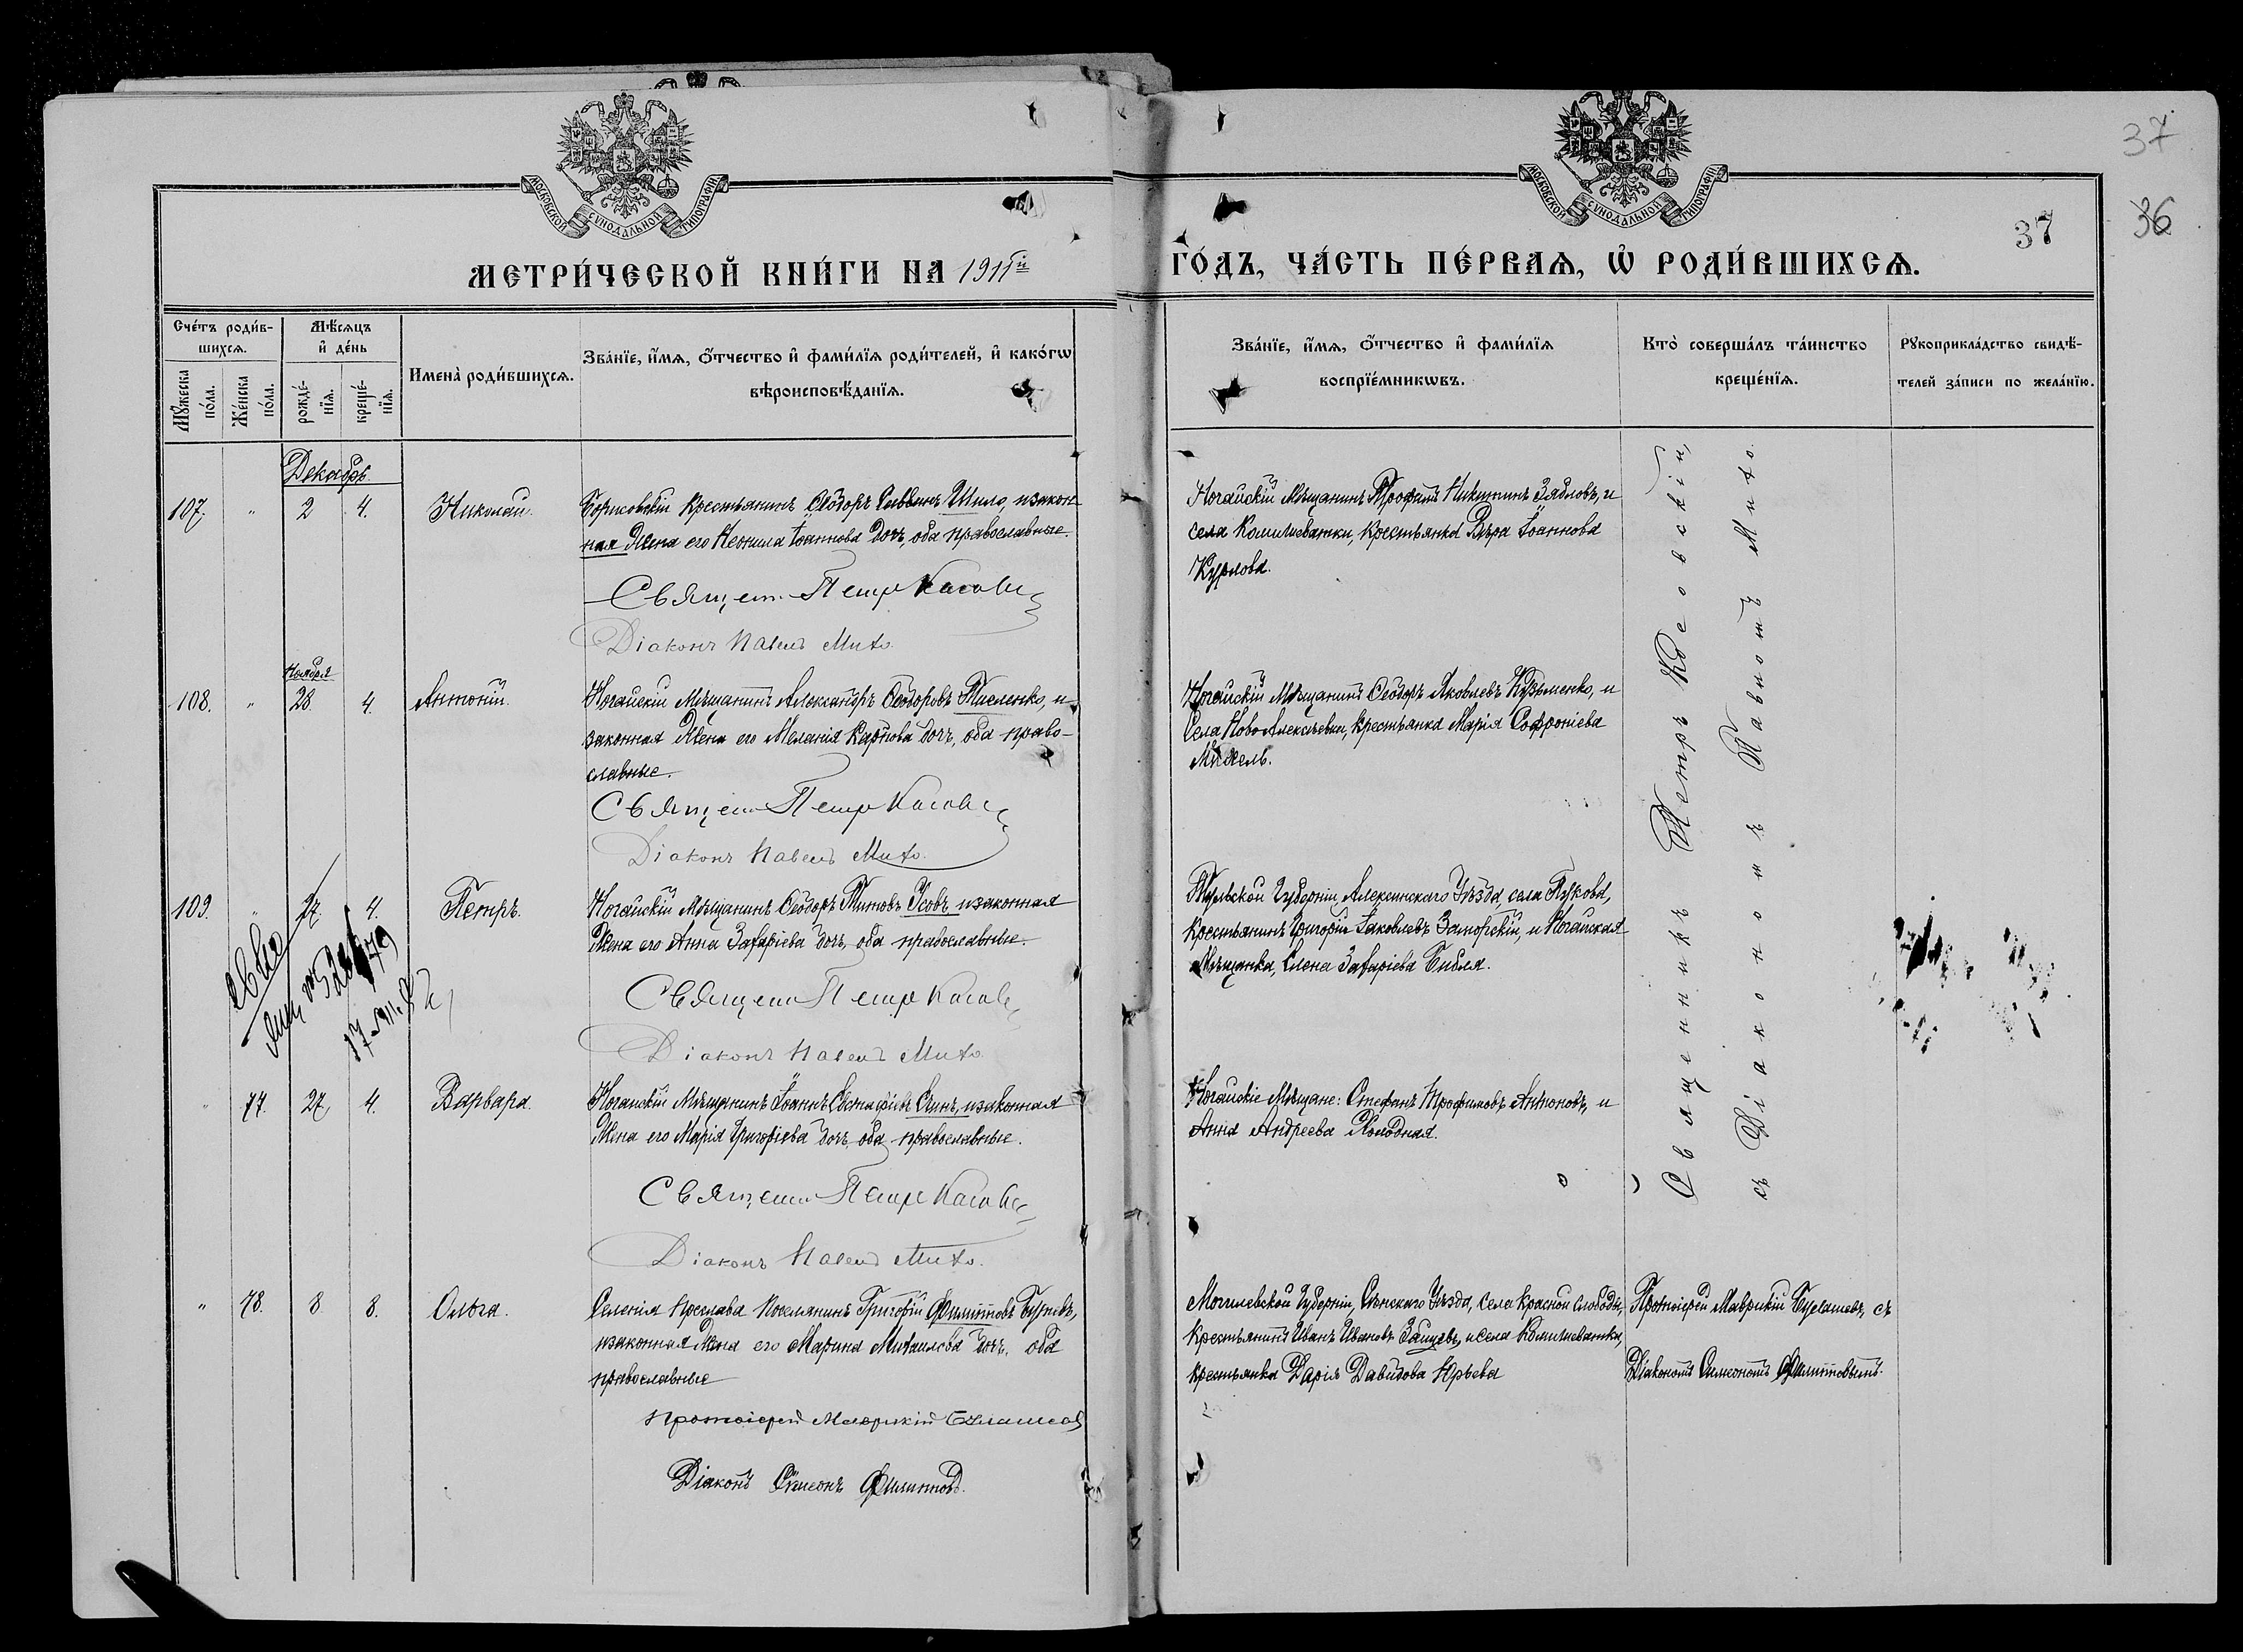 37
36
37
МОСКОВСКОЙ СѴНОДАЛЬНОЙ ТИПОГРАФІИ
МОСКОВСКОЙ СѴНОДАЛЬНОЙ ТИПОГРАФІИ
МЕТРИ́ЧЕСКОЙ КНИ́ГИ НА 1911й
ГО́ДЪ, ЧА́СТЬ ПЕ́РВАѦ, Ѡ РОДИ́ВШИХСѦ.
Сче́тъ роди́в-
шихсѧ.
Мꙋ́жеска
по́ла.
Же́нска
по́ла.
Мѣ́сѧцъ
и҆ де́нь
рожде́-
нїѧ.
креще́-
нїѧ.
Имена̀ роди́вшихсѧ.
Зва́нїе, и҆́мѧ, о҆́тчество и҆ фами́лїѧ роди́телей, и҆ како́гѡ
вѣроисповѣ́данїѧ.
Зва́нїе, и҆́мѧ, о҆́тчество и҆ фами́лїѧ
воспрїе́мникѡвъ.
Кто̀ соверша́лъ та́инство
креще́нїѧ.
Рꙋкоприкла́дство свидѣ́-
телей за́писи по жела́нїю.
Декабрь
107. " 2 4. Николай.
Борисовскій крестьянинъ Ѳеодоръ Шило, и закон
ная Жена его Неонила Іоаннова дочь, оба православные.
Священ. Петръ
Діаконъ Павелъ Михо.
Ногайскій Мѣщанинъ Трофимъ Никитинъ Зябловъ, и
села Комишеватки, крестьянка Вѣра Іоаннова
Курлова.
Ноября
108. " 28 4. Антоній.
Ногайскій Мѣщанинъ Александръ Ѳеодоровъ Тисленко, и
законная Жена его Меланія Карпова дочь, оба право-
славные.
Священ Петръ
Діаконъ Павелъ Михо.
Ногайскій Мѣщанинъ Ѳеодоръ Яковлевъ Кузьменко, и
Села Ново Алексѣевки, крестьянка Марія Софроніева
109. " 27. 4. Петръ.
Ногайскій Мѣщанинъ Ѳеодоръ Титовъ Усовъ, и законная
Жена его Анна Захаріева дочь, оба православные.
Священ Петръ
Діаконъ Павелъ Михо
Тульской Губерніи, Алексинскаго Уѣзда, села Пукова,
крестьянинъ Григорій Іаковлевъ Заморскій, и Ногайская
Мѣщанка, Елена Захаріева Библя.
" 77. 27, 4. Варвара.
Ногайскій Мѣщанинъ Іоаннъ Евстафіевъ и законная
Жена его Марія Григоріева дочь, оба православные.
Священ Петръ
Діаконъ Павелъ Михо.
Ногайскіе Мѣщане: Стефанъ Трофимовъ Антоновъ, и
Анна Андреева Холодная.
Священникъ Петръ
съ Діакономъ Павломъ Михо.
" 78. 8. 8. Ольга.
Селенія Преслава Поселянинъ Григорій Филипповъ
и законная Жена его Марина Михаилова дочь, оба
православные
Протоіерей Маврикій
Діаконъ Симеонъ Филипповъ.
Могилевской Губерніи, Сѣнскаго Уѣзда, села Красной Слободы,
крестьянинъ Иванъ Ивановъ Зайцевъ, и села Комишеватки,
крестьянка Дарія Давидова
Протоіерей Маврикій съ
Діакономъ Симеономъ Филипповымъ.